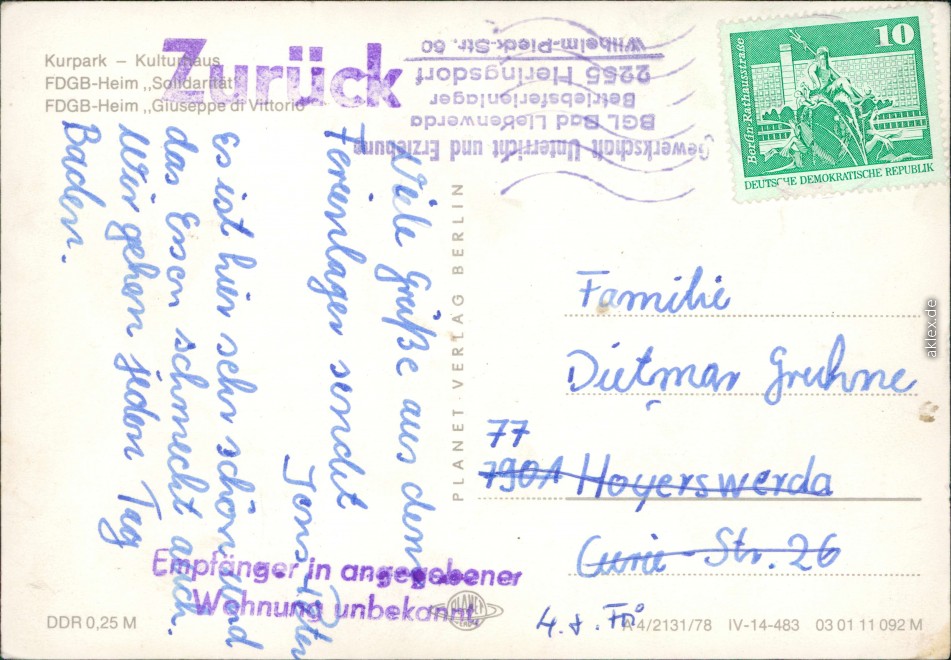 Kurpark – Kulturhaus
FDGB-Heim „Solidarität"
FDGB-Heim „Giuseppe di Vittorio"
Zurück
Gewerkschaft Unterricht und Erziehung
BGL Bad Liebenwerda
Betriebsferienlager
2255 Heringsdorf
Wilhelm-Pieck-Str. 60
10
Berlin-Rathausstraße
DEUTSCHE DEMOKRATISCHE REPUBLIK
Viele Grüße aus dem
Ferienlager sendet
Jens-Peter
Es ist hier sehr schön und
das Essen schmeckt auch.
Wir gehen jeden Tag
Baden.
PLANET-VERLAG BERLIN
Familie
Dietmar Gruhne
77
7901 Hoyerswerda
Curie-Str. 26
Empfänger in angegebener
Wohnung unbekannt
PLANET
DDR 0,25 M
A 4/2131/78 IV-14-483 03 01 11 092 M
aklex.de